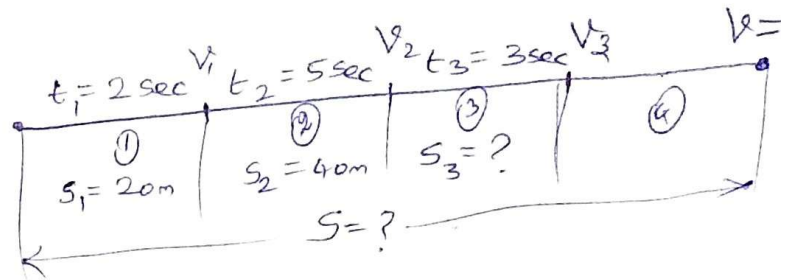 t₁ = 2 sec V₁ t₂ = 5 sec V₂ t₃ = 3 sec V₃ V =
① ② ③ ④
S₁ = 20m S₂ = 40m S₃ = ?
S = ?